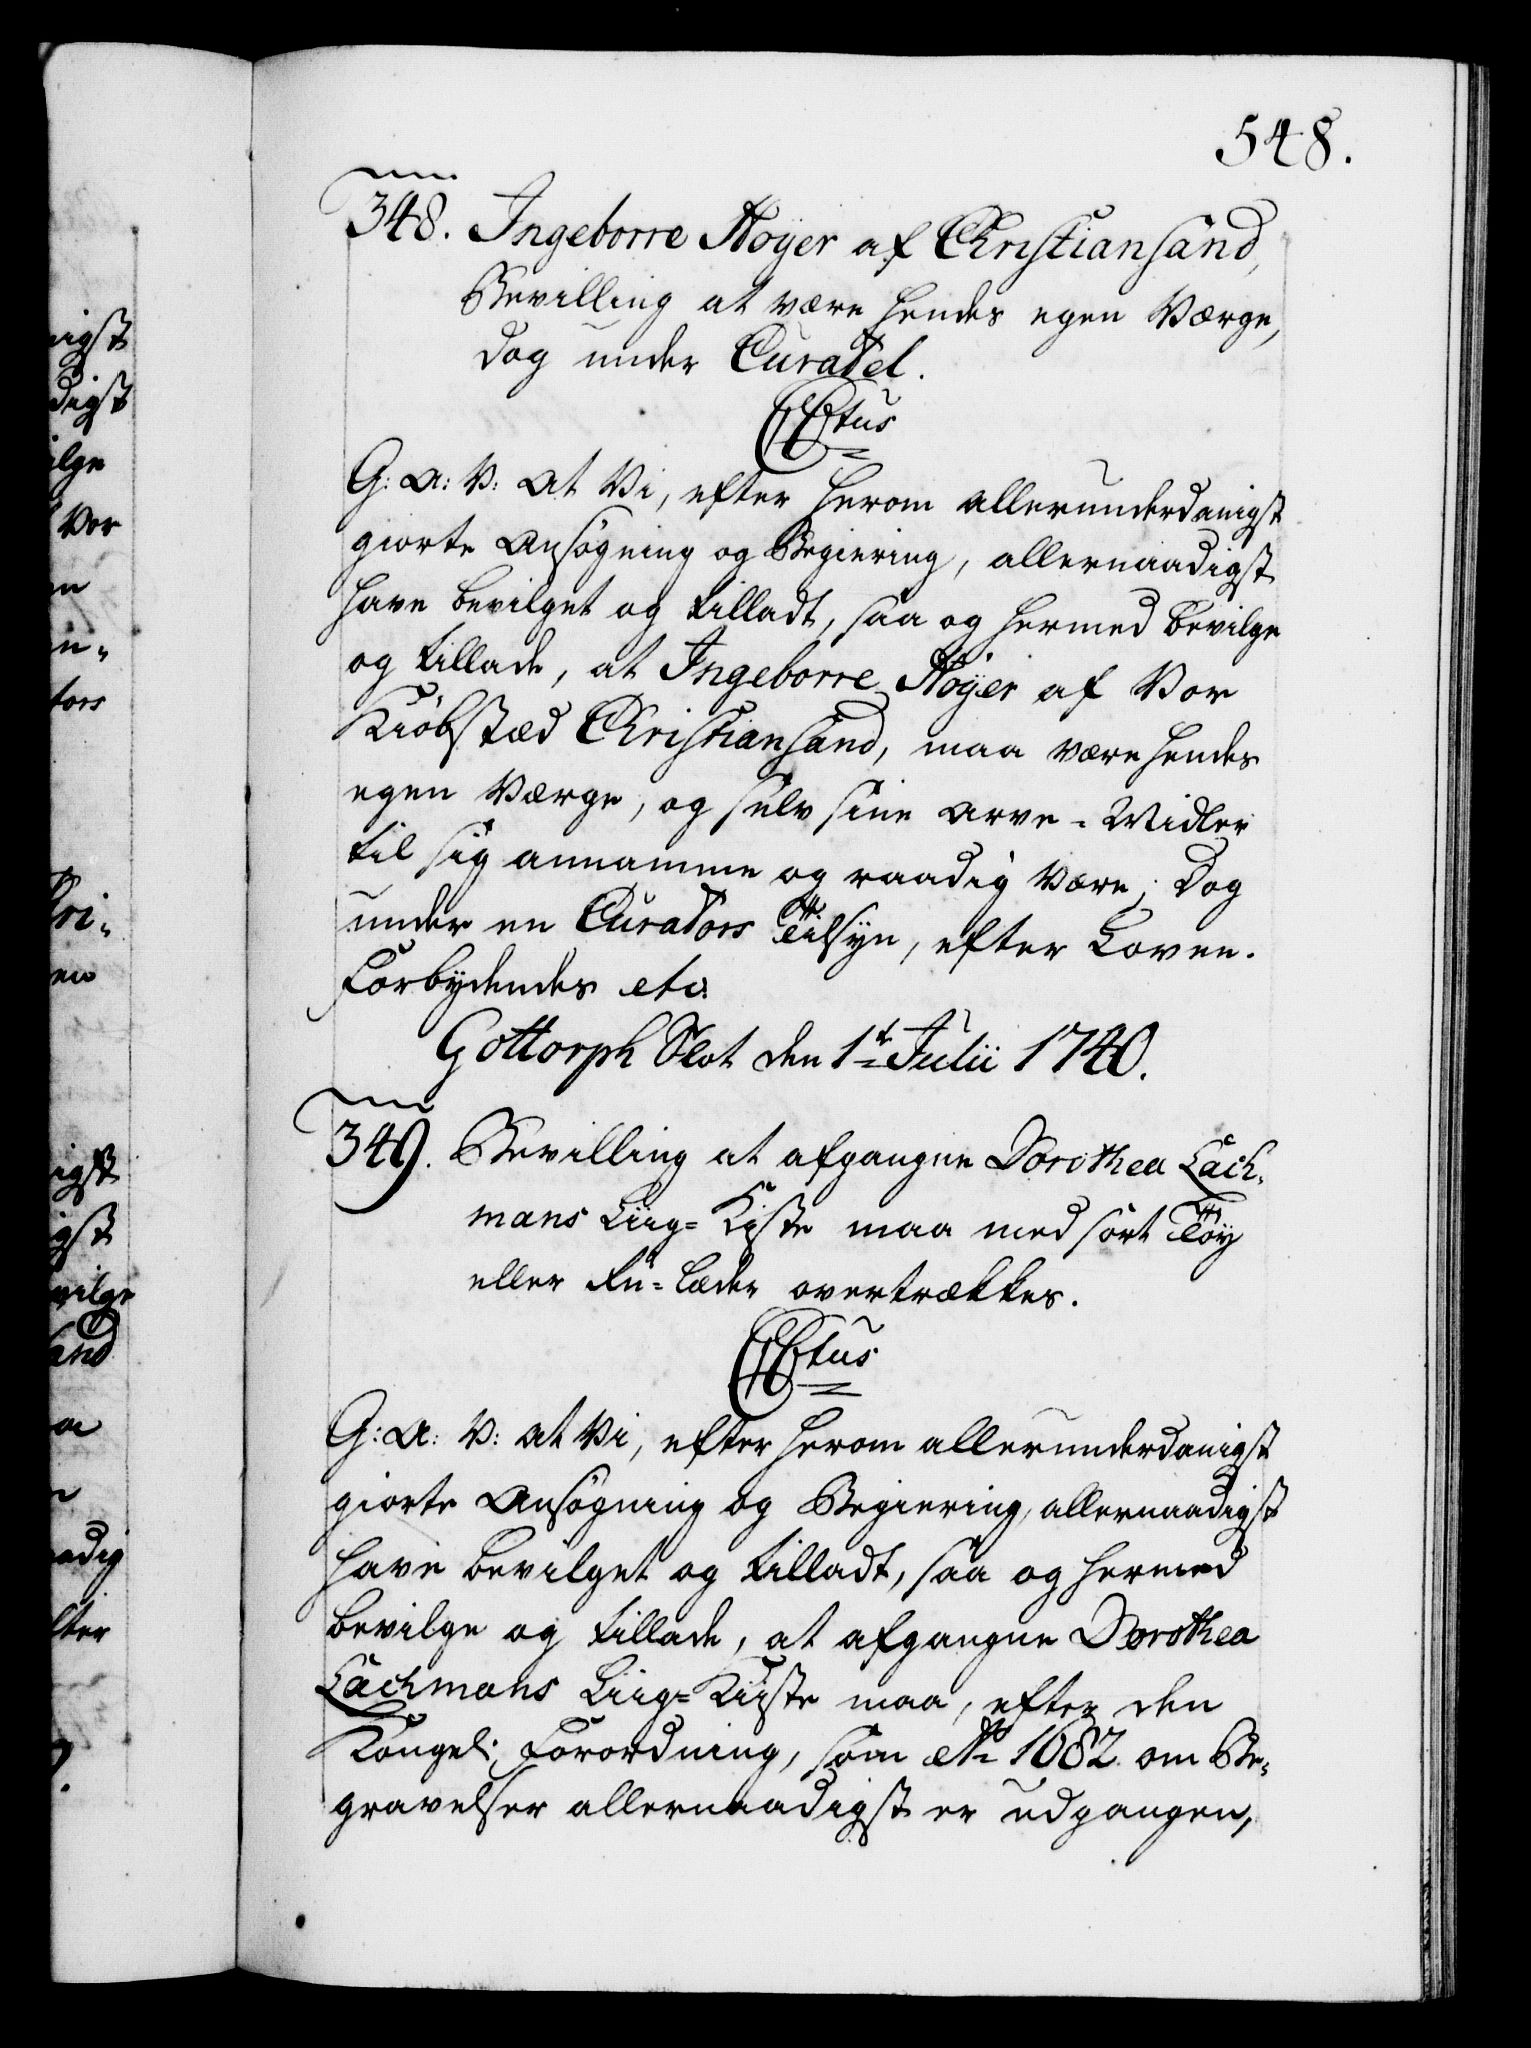 548.
348. Ingeborre Höyer af Christiansand,
Bevilling at være hendes egen Værge,
dog under Curatel.
CCtus
G: A: V: at Vi, efter herom allerunderdanigst
giorte Ansøgning og Begiering, allernaadigst
have bevilget og tilladt, saa og hermed bevilge
og tillade, at Ingeborre Höyer af Vor
Kiöbstæd Christiansand, maa være hendes
egen Værge, og selv sine Arve-Midler
til sig annamme og raadig være; Dog
under en Curators Tilsyn, efter Loven.
Forbydendes etc:
Gottorph Slot den 1te Julii 1740.
349. Bevilling at afgangne Dorothea Lach-
mans Liig-Kiste maa med sort Töy
eller Ru-læder overtrækkes.
CCtus
G: A: V: at Vi, efter herom allerunderdanigst
giorte Ansøgning og Begiering, allernaadigst
have bevilget og tilladt, saa og hermed
bevilge og tillade, at afgangne Dorothea
Lachmans Liig-Kiiste maa, efter den
Kongel: Forordning, som Ao 1682 om Be-
gravelser allernaadigst er udgangen,